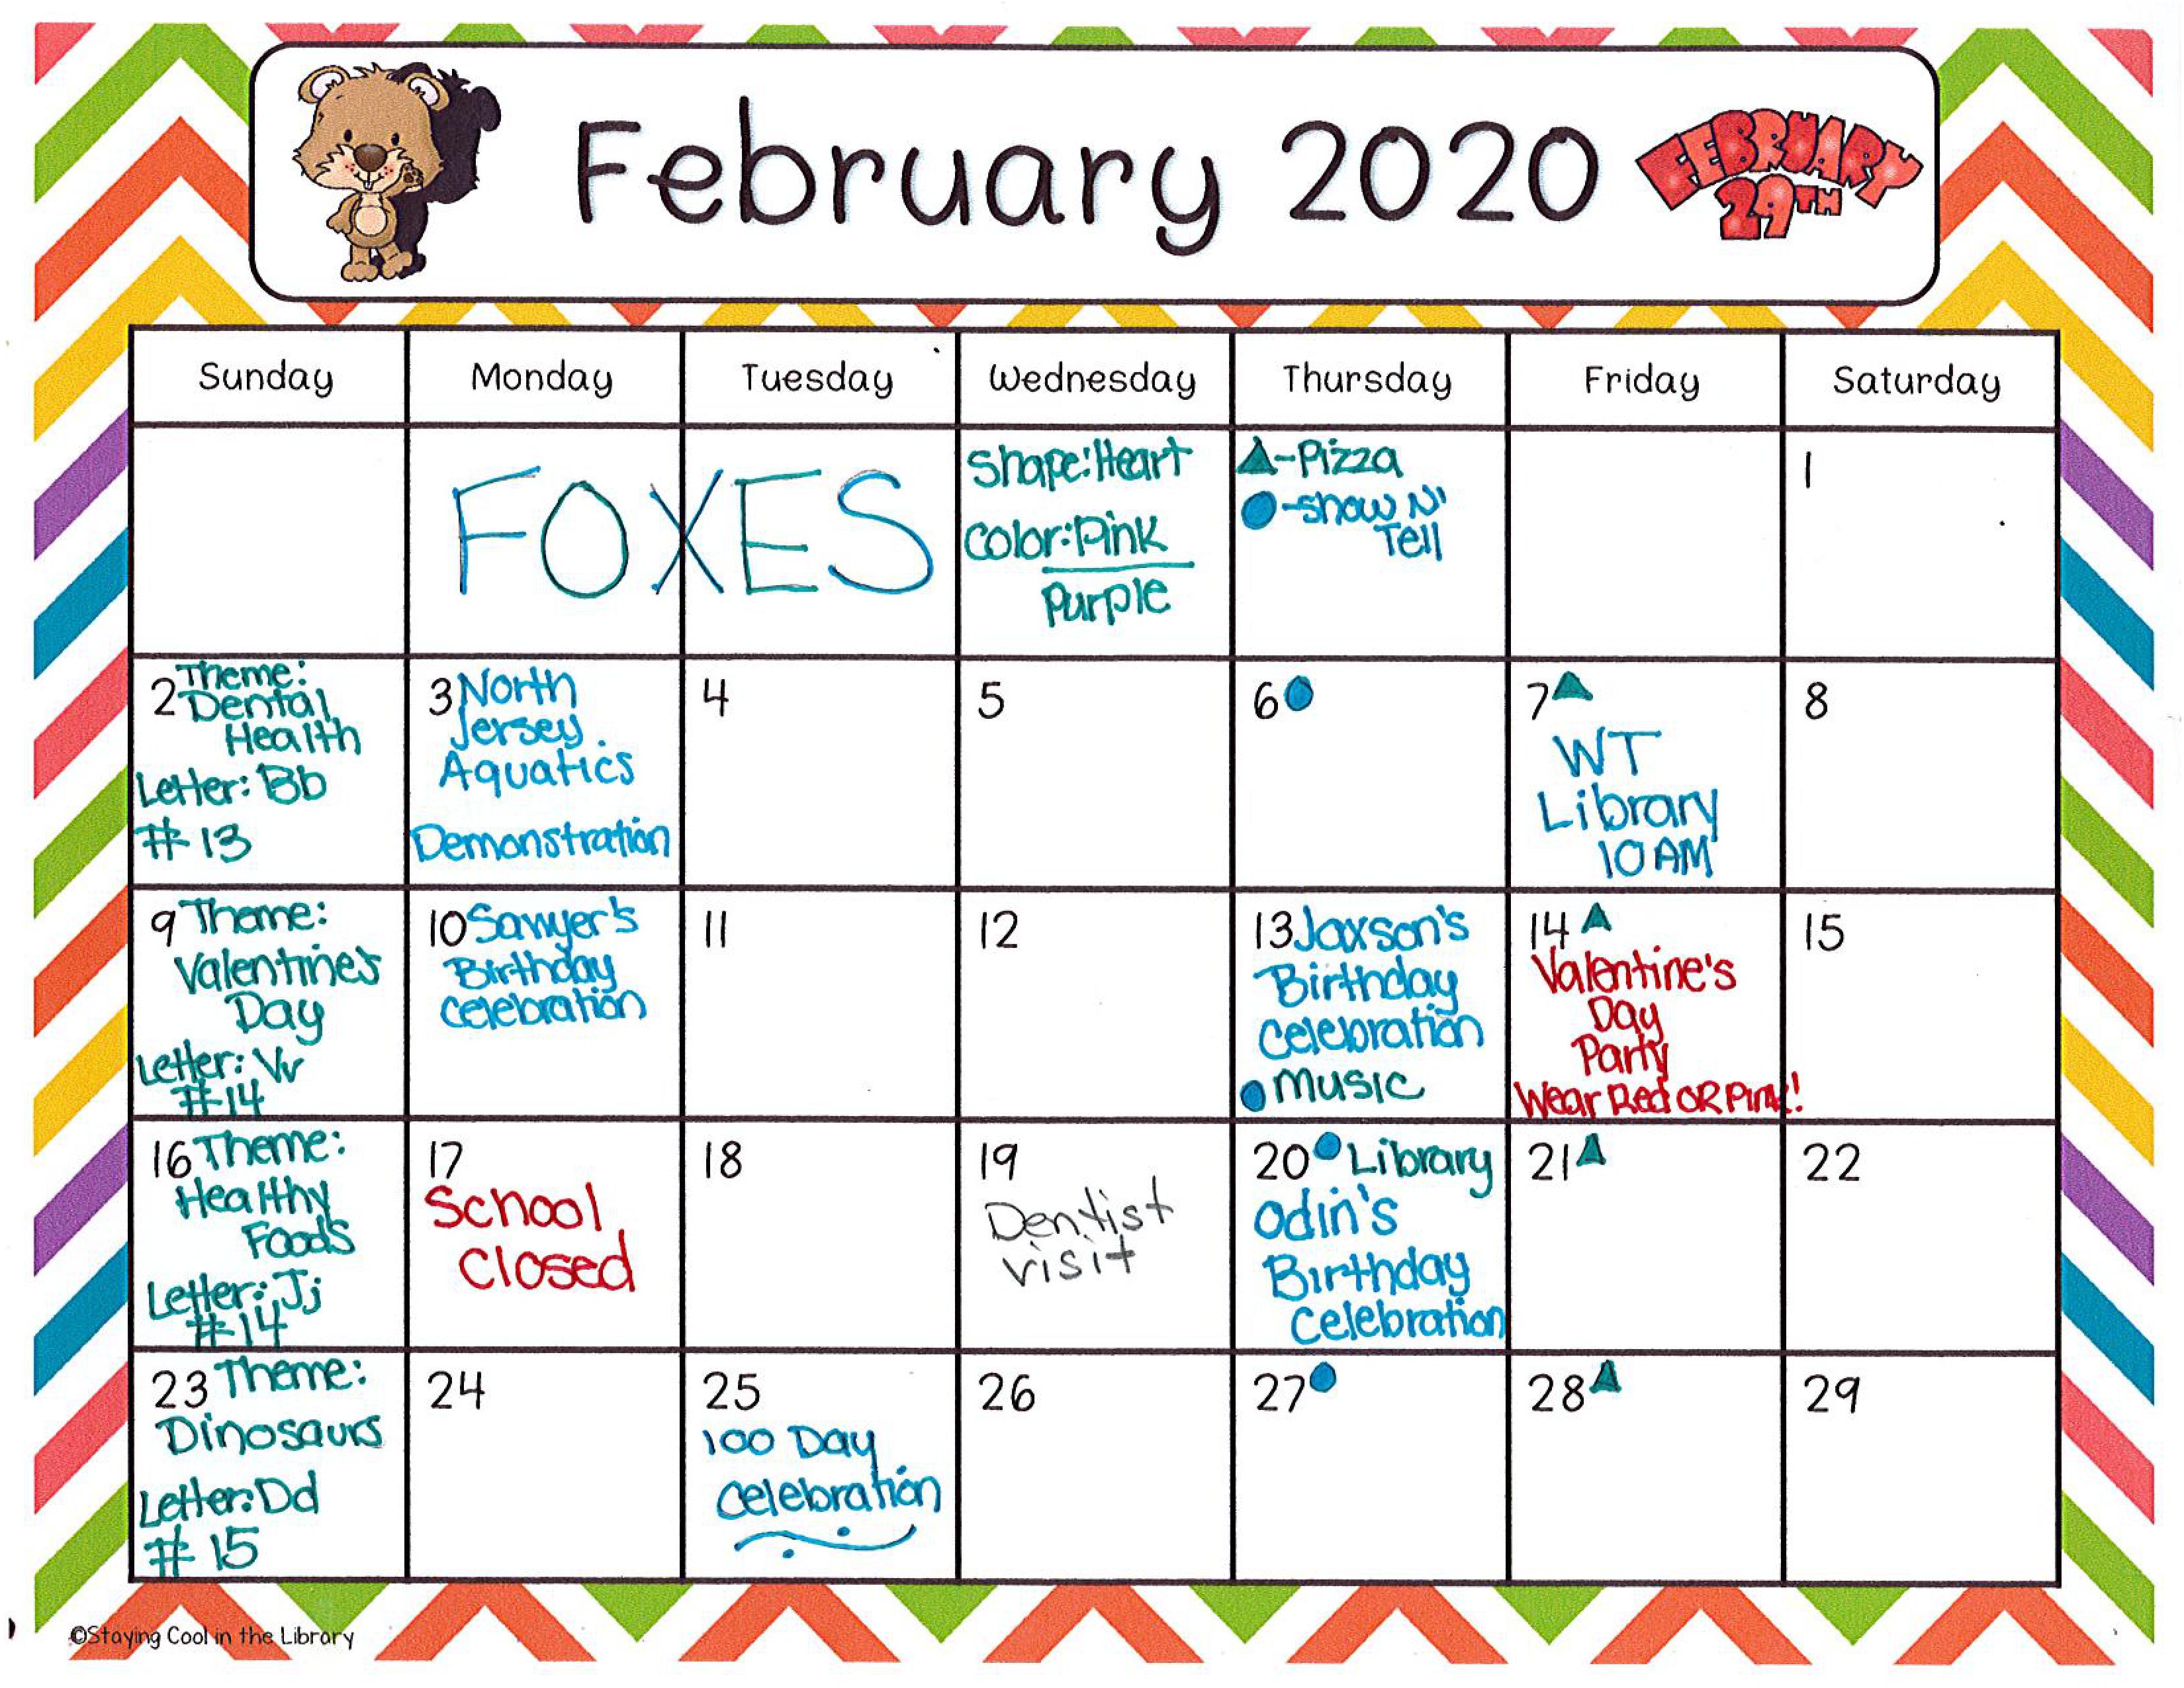 February 2020
FEBRUARY
29TH
Sunday Monday Tuesday Wednesday Thursday Friday Saturday
FOXES
Shape: Heart
Color: Pink
Purple
-Pizza
-Show N'
Tell
1
2 Theme:
Dental
Health
Letter: Bb
# 13
3 North
Jersey
Aquatics
Demonstration
4
5
6
7
WT
Library
10 AM
8
9 Theme:
Valentine's
Day
Letter: Vv
#14
10 Sawyer's
Birthday
Celebration
11
12
13 Jaxson's
Birthday
Celebration
Music
14
Valentine's
Day
Party
Wear Red OR Pink!
15
16 Theme:
Healthy
Foods
Letter: Jj
#14
17
School
Closed
18
19
Dentist
visit
20 Library
Odin's
Birthday
Celebration
21
22
23 Theme:
Dinosaurs
Letter: Dd
# 15
24
25
100 Day
Celebration
26
27
28
29
©Staying Cool in the Library